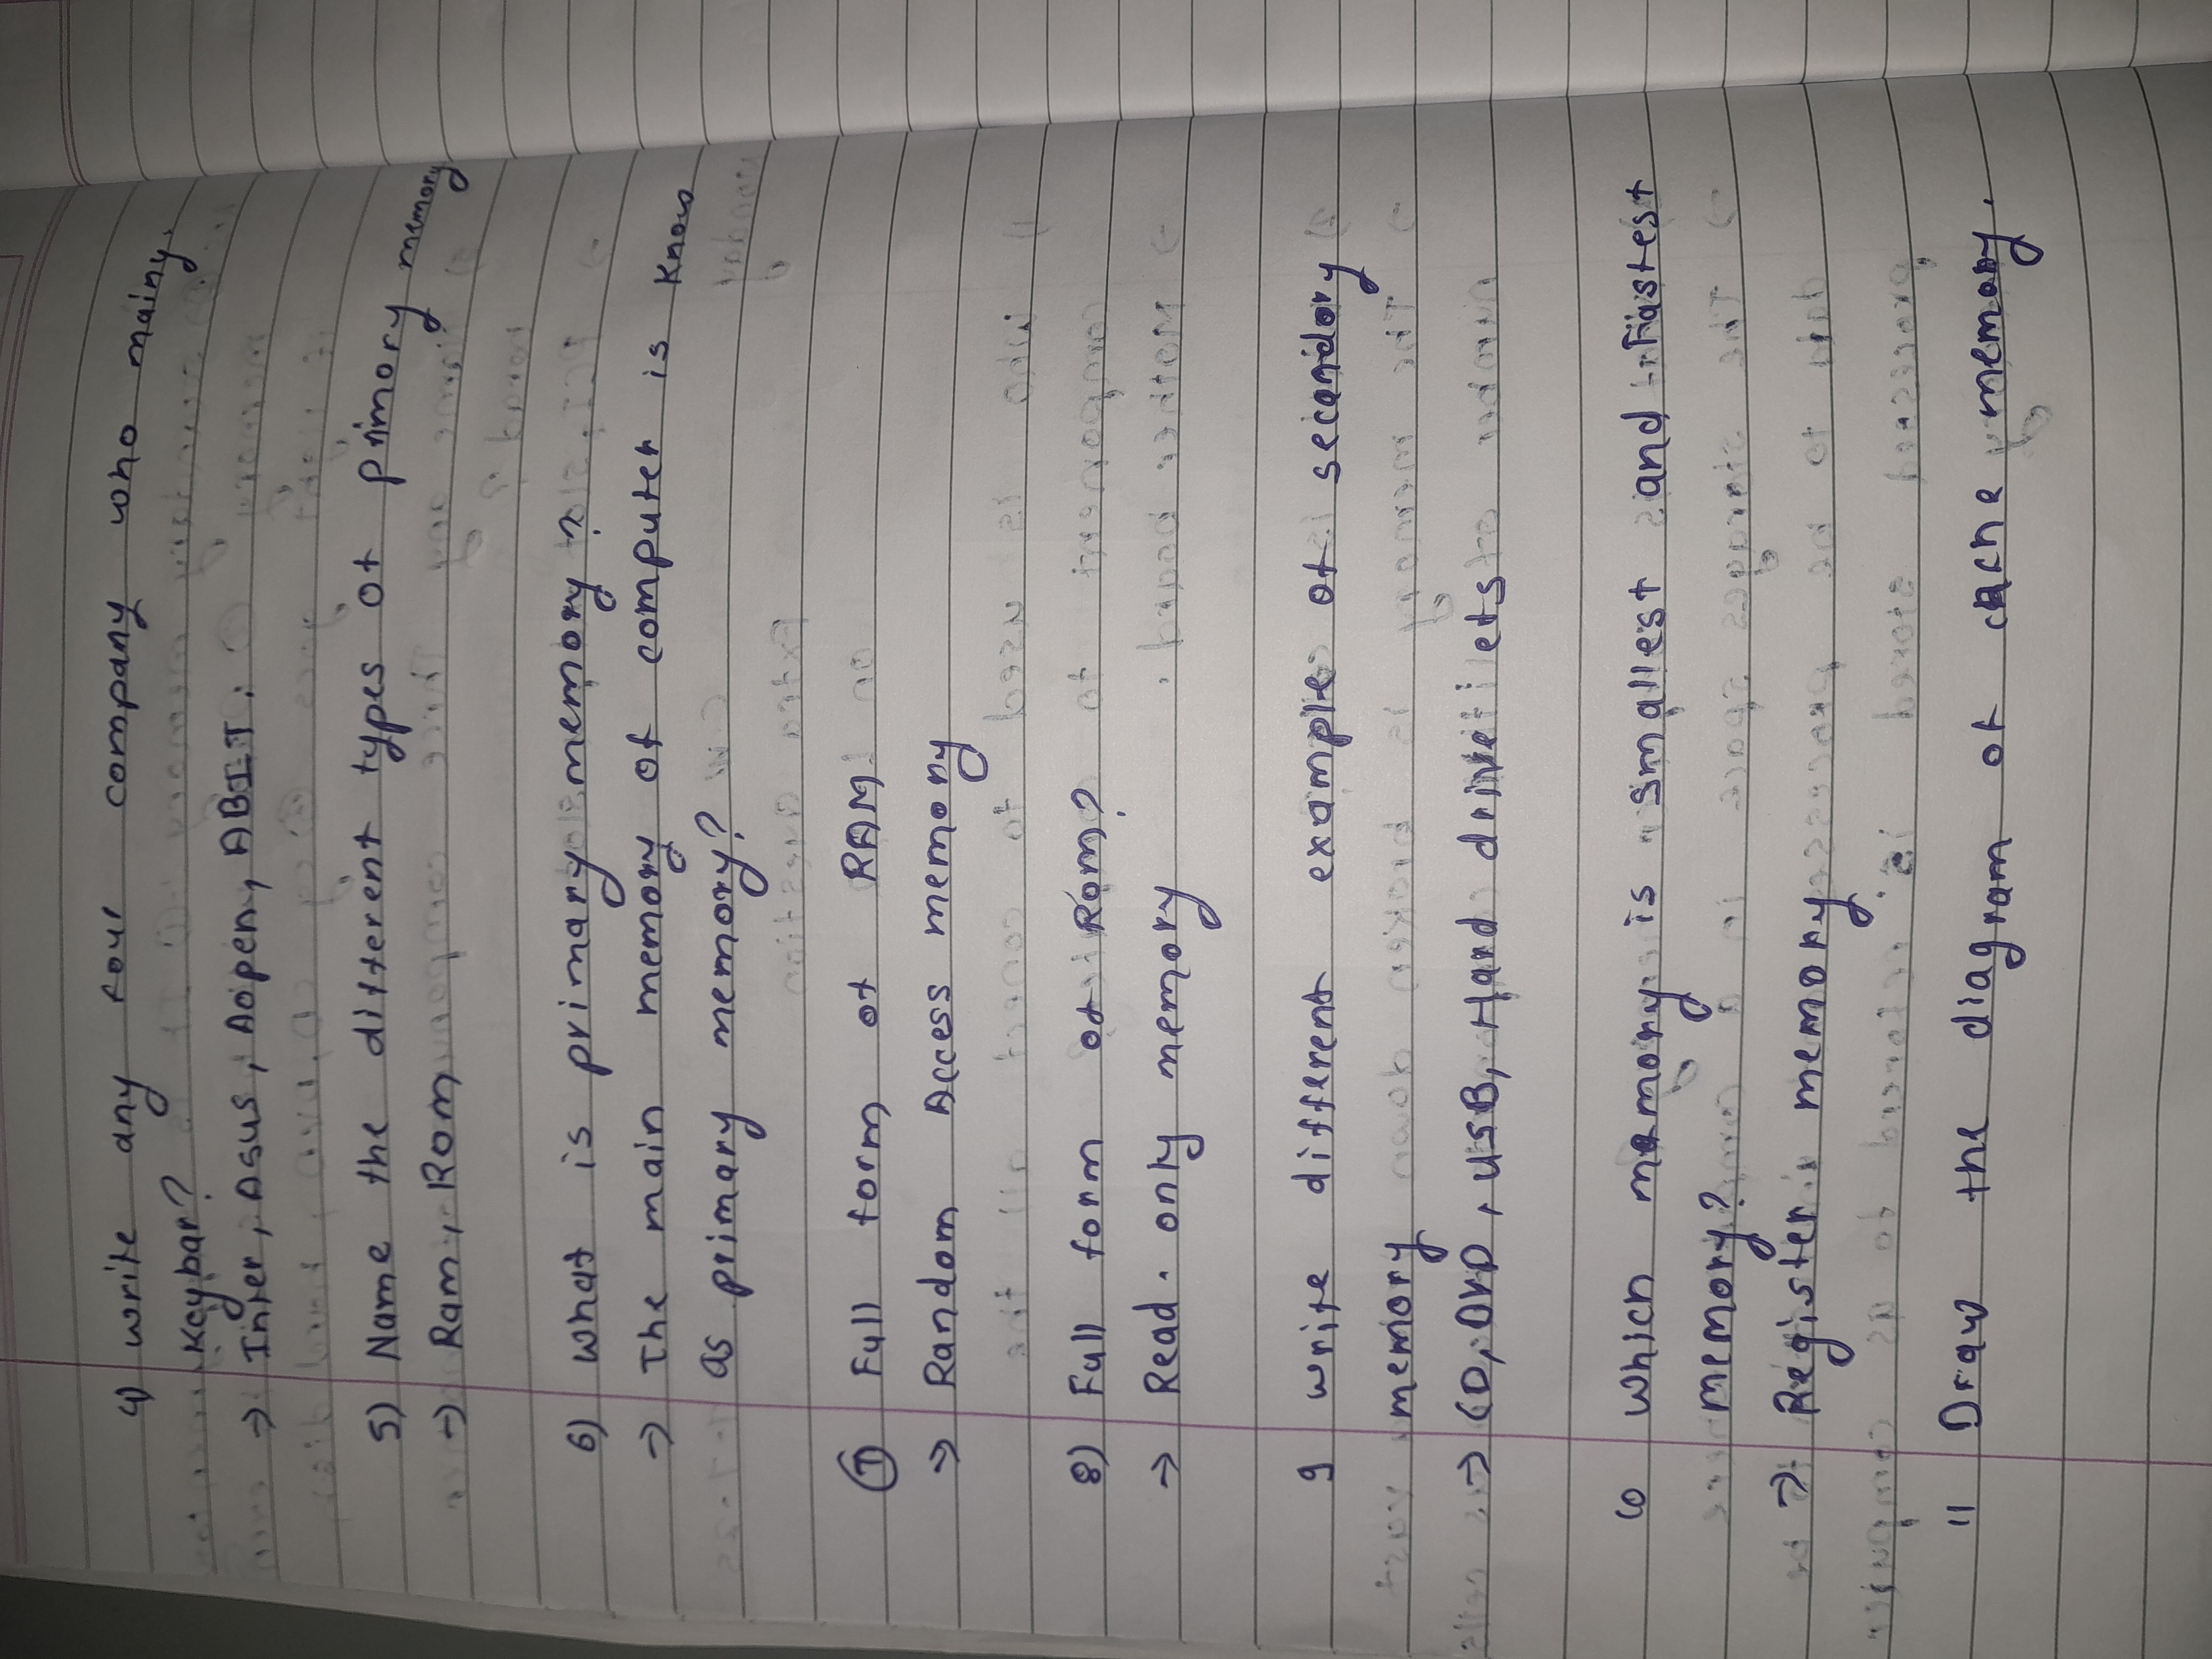 4) write any four company who mainy.
Keybar?
→ Inter, Asus, Aopen, ABIT.
5) Name the different types of primory memory
→ Ram, Rom
6) what is primary memory?
→ The main memory of computer is know
as primary memory?
7 Full form of RAM
→ Random Access memony
8) Full form of Rom?
→ Read. only memory
9 write different example of secandory
memory
→ CD, DVD, USB, Hard drive ets
10 which memory is smallest and Fastest
memory?
→ Register memory
11 Draw the diagram of cache memory.